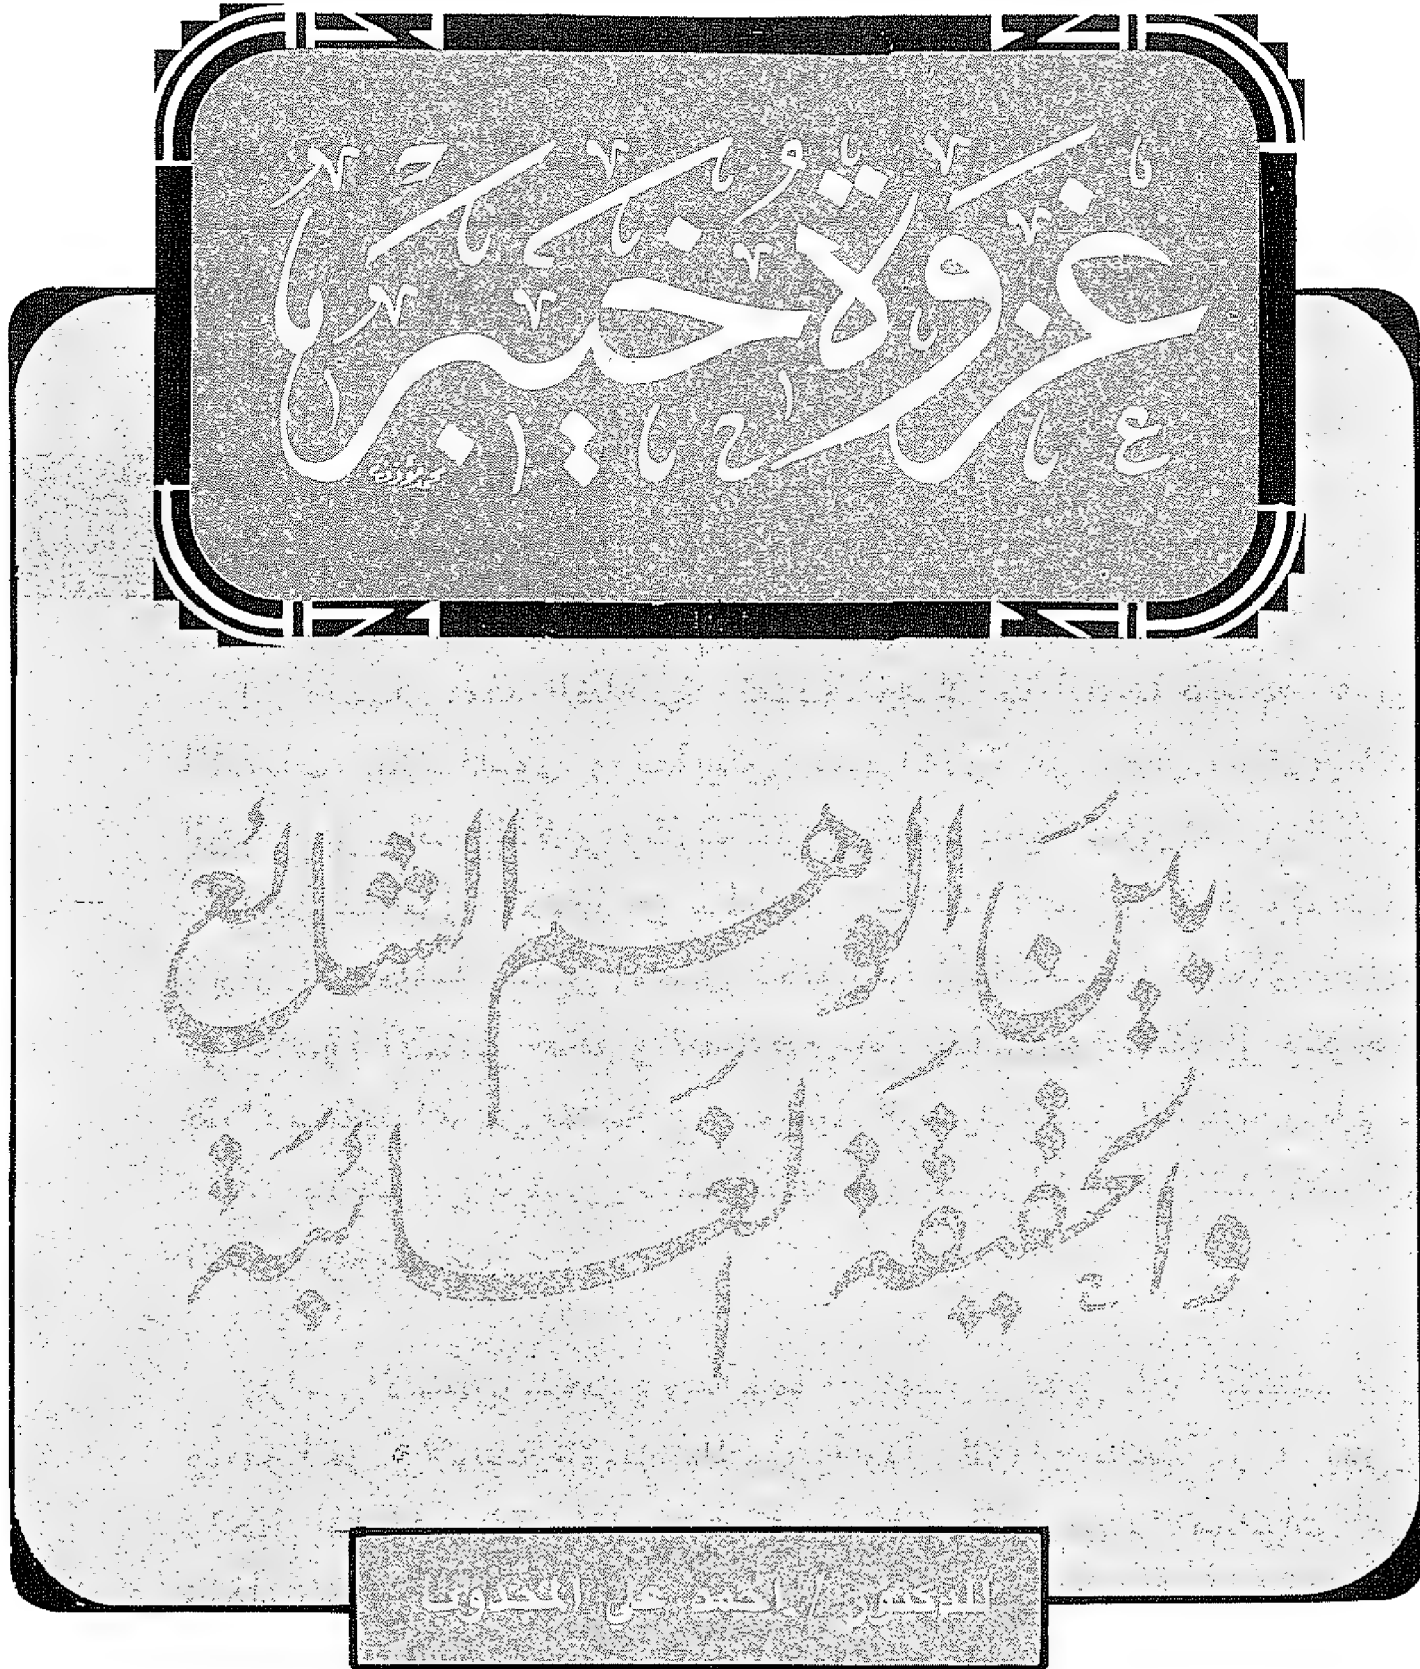 غزوة خيبر
بين الوهم الشائع
والحقيقة الغائبة
للدكتور / أحمد على المجدوب